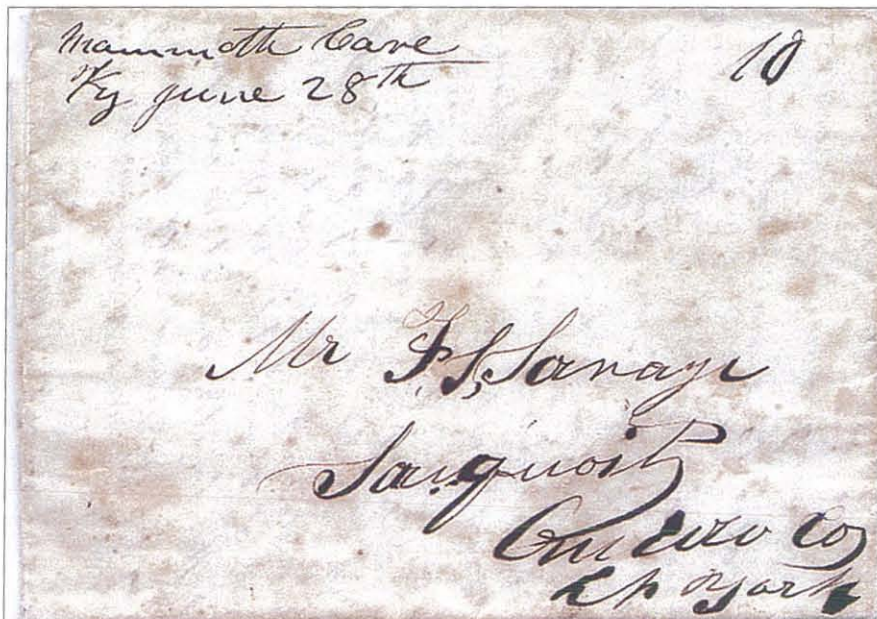 Mammoth Cave
Ky June 28th
10
Mr F S Savage
Sauquoit
Co
York